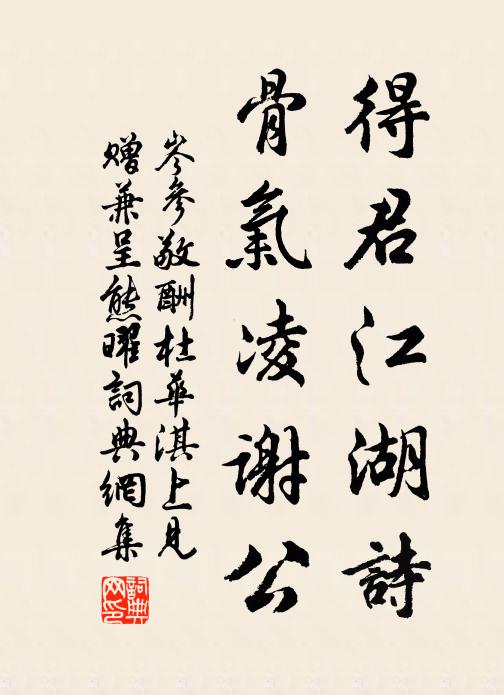 得君江湖詩
骨氣凌謝公
岑參敬酬杜華淇上見
贈兼呈熊曜詞典網集
詞典網印